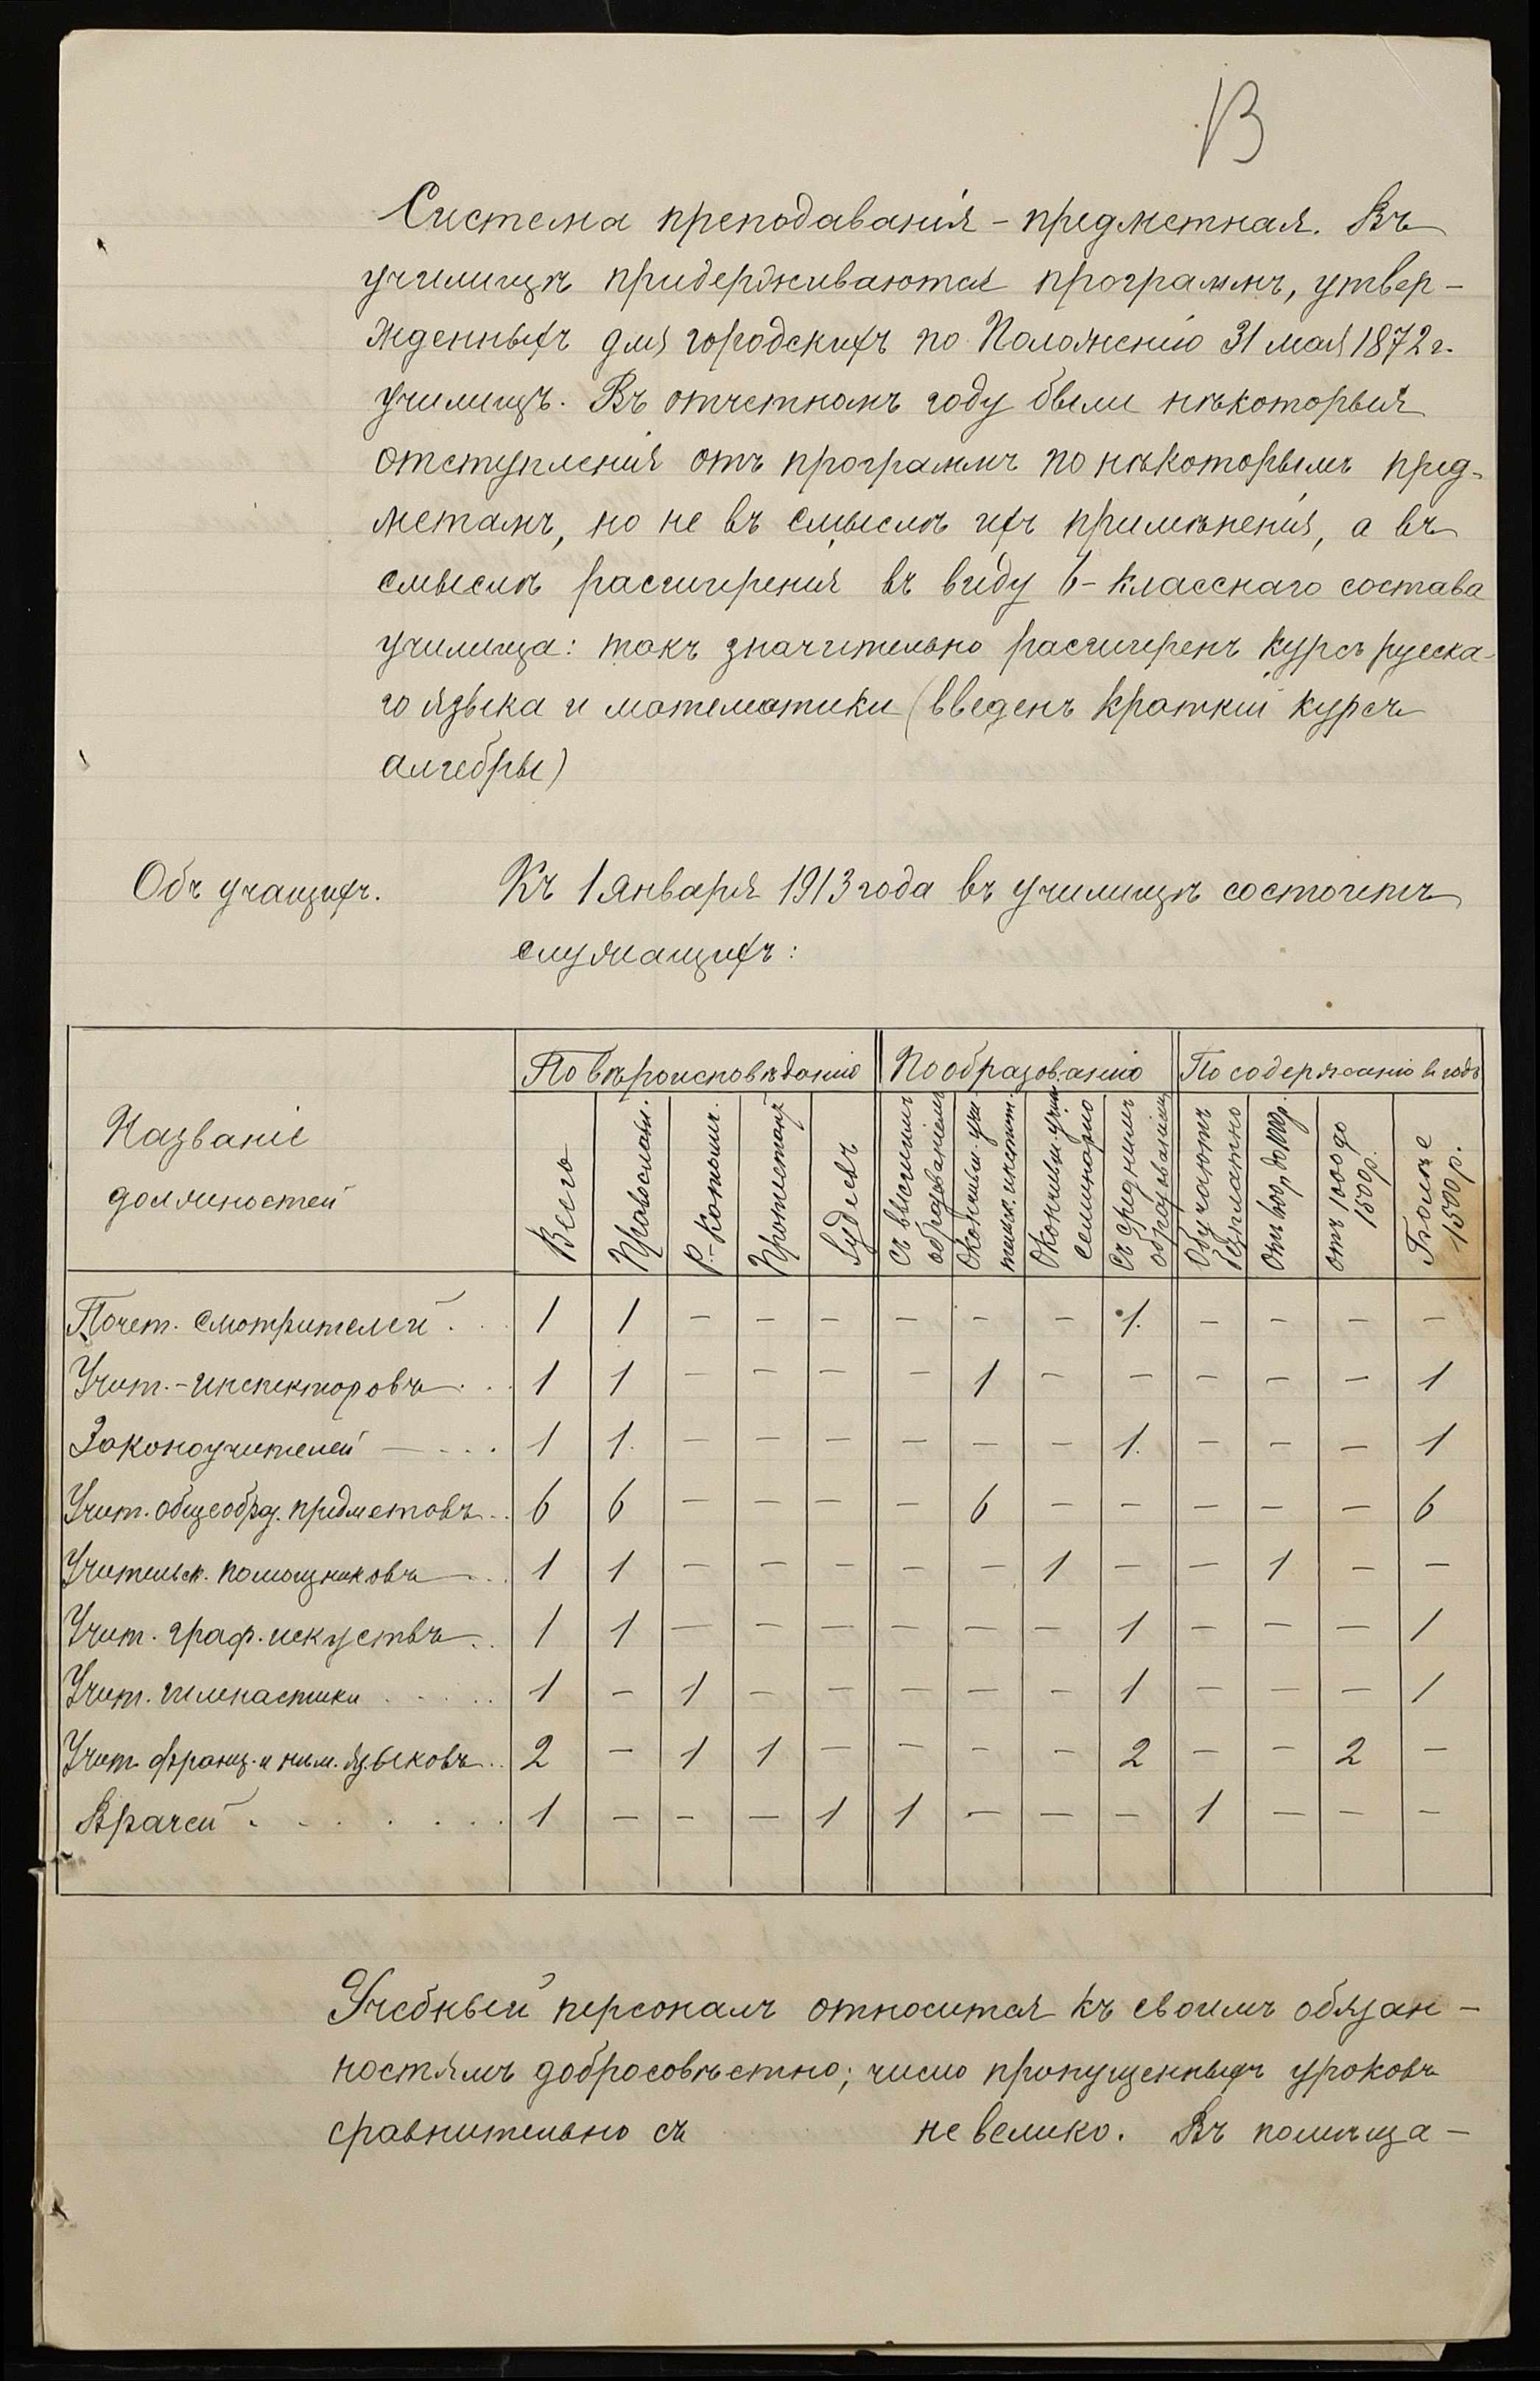 13
Система преподаванія – предметная. Въ
училищѣ придерживаются программъ, утвер-
жденныхъ для городскихъ по Положенію 31 мая 1872 г.
училищъ. Въ отчетномъ году были нѣкоторыя
отступленія отъ программъ по нѣкоторымъ пред-
метамъ, но не въ смыслѣ ихъ примѣненія, а въ
смыслѣ расширенія въ виду 6-класснаго состава
училища: такъ значительно расширенъ курсъ русска-
го языка и математики (введенъ краткій курсъ
алгебры)
Объ учащихъ.
Къ 1 января 1913 года въ училищѣ состоитъ
служащихъ:
Названіе
должностей
По вѣроисповѣданію | По образованію | По содержанію въ годъ
Всего | Православн. | Р.-Католич. | Протестант. | Іудеевъ | Съ высшимъ образованіемъ | Окончивш. учи-тельск. институт. | Окончивш. учит. семинарію | Съ среднимъ образованіемъ | Обучаютъ безплатно | Отъ 600 р. до 1000 р. | отъ 1000 до 1500 р. | Болѣе 1500 р.
Почет. смотрителей . . 1 1 – – – – – – 1. – – – –
Учит.-инспекторовъ . . 1 1 – – – – 1 – – – – – 1
Законоучителей – . . . 1 1. – – – – – – 1. – – – 1
Учит. общеобраз. предметовъ . . 6 6 – – – – 6 – – – – – 6
Учительск. помощниковъ . . 1 1 – – – – – 1 – – 1 – –
Учит. граф. искуствъ . . 1 1 – – – – – – 1 – – – 1
Учит. гимнастики . . . . . 1 – 1 – – – – – 1 – – – 1
Учит. франц. и нѣм. языковъ . . 2 – 1 1 – – – – 2 – – 2 –
Врачей . . . . . . . 1 – – – 1 1 – – – 1 – – –
Учебный персоналъ относится къ своимъ обязан-
ностямъ добросовѣстно; число пропущенныхъ уроковъ
сравнительно съ не велико. Въ помѣща-